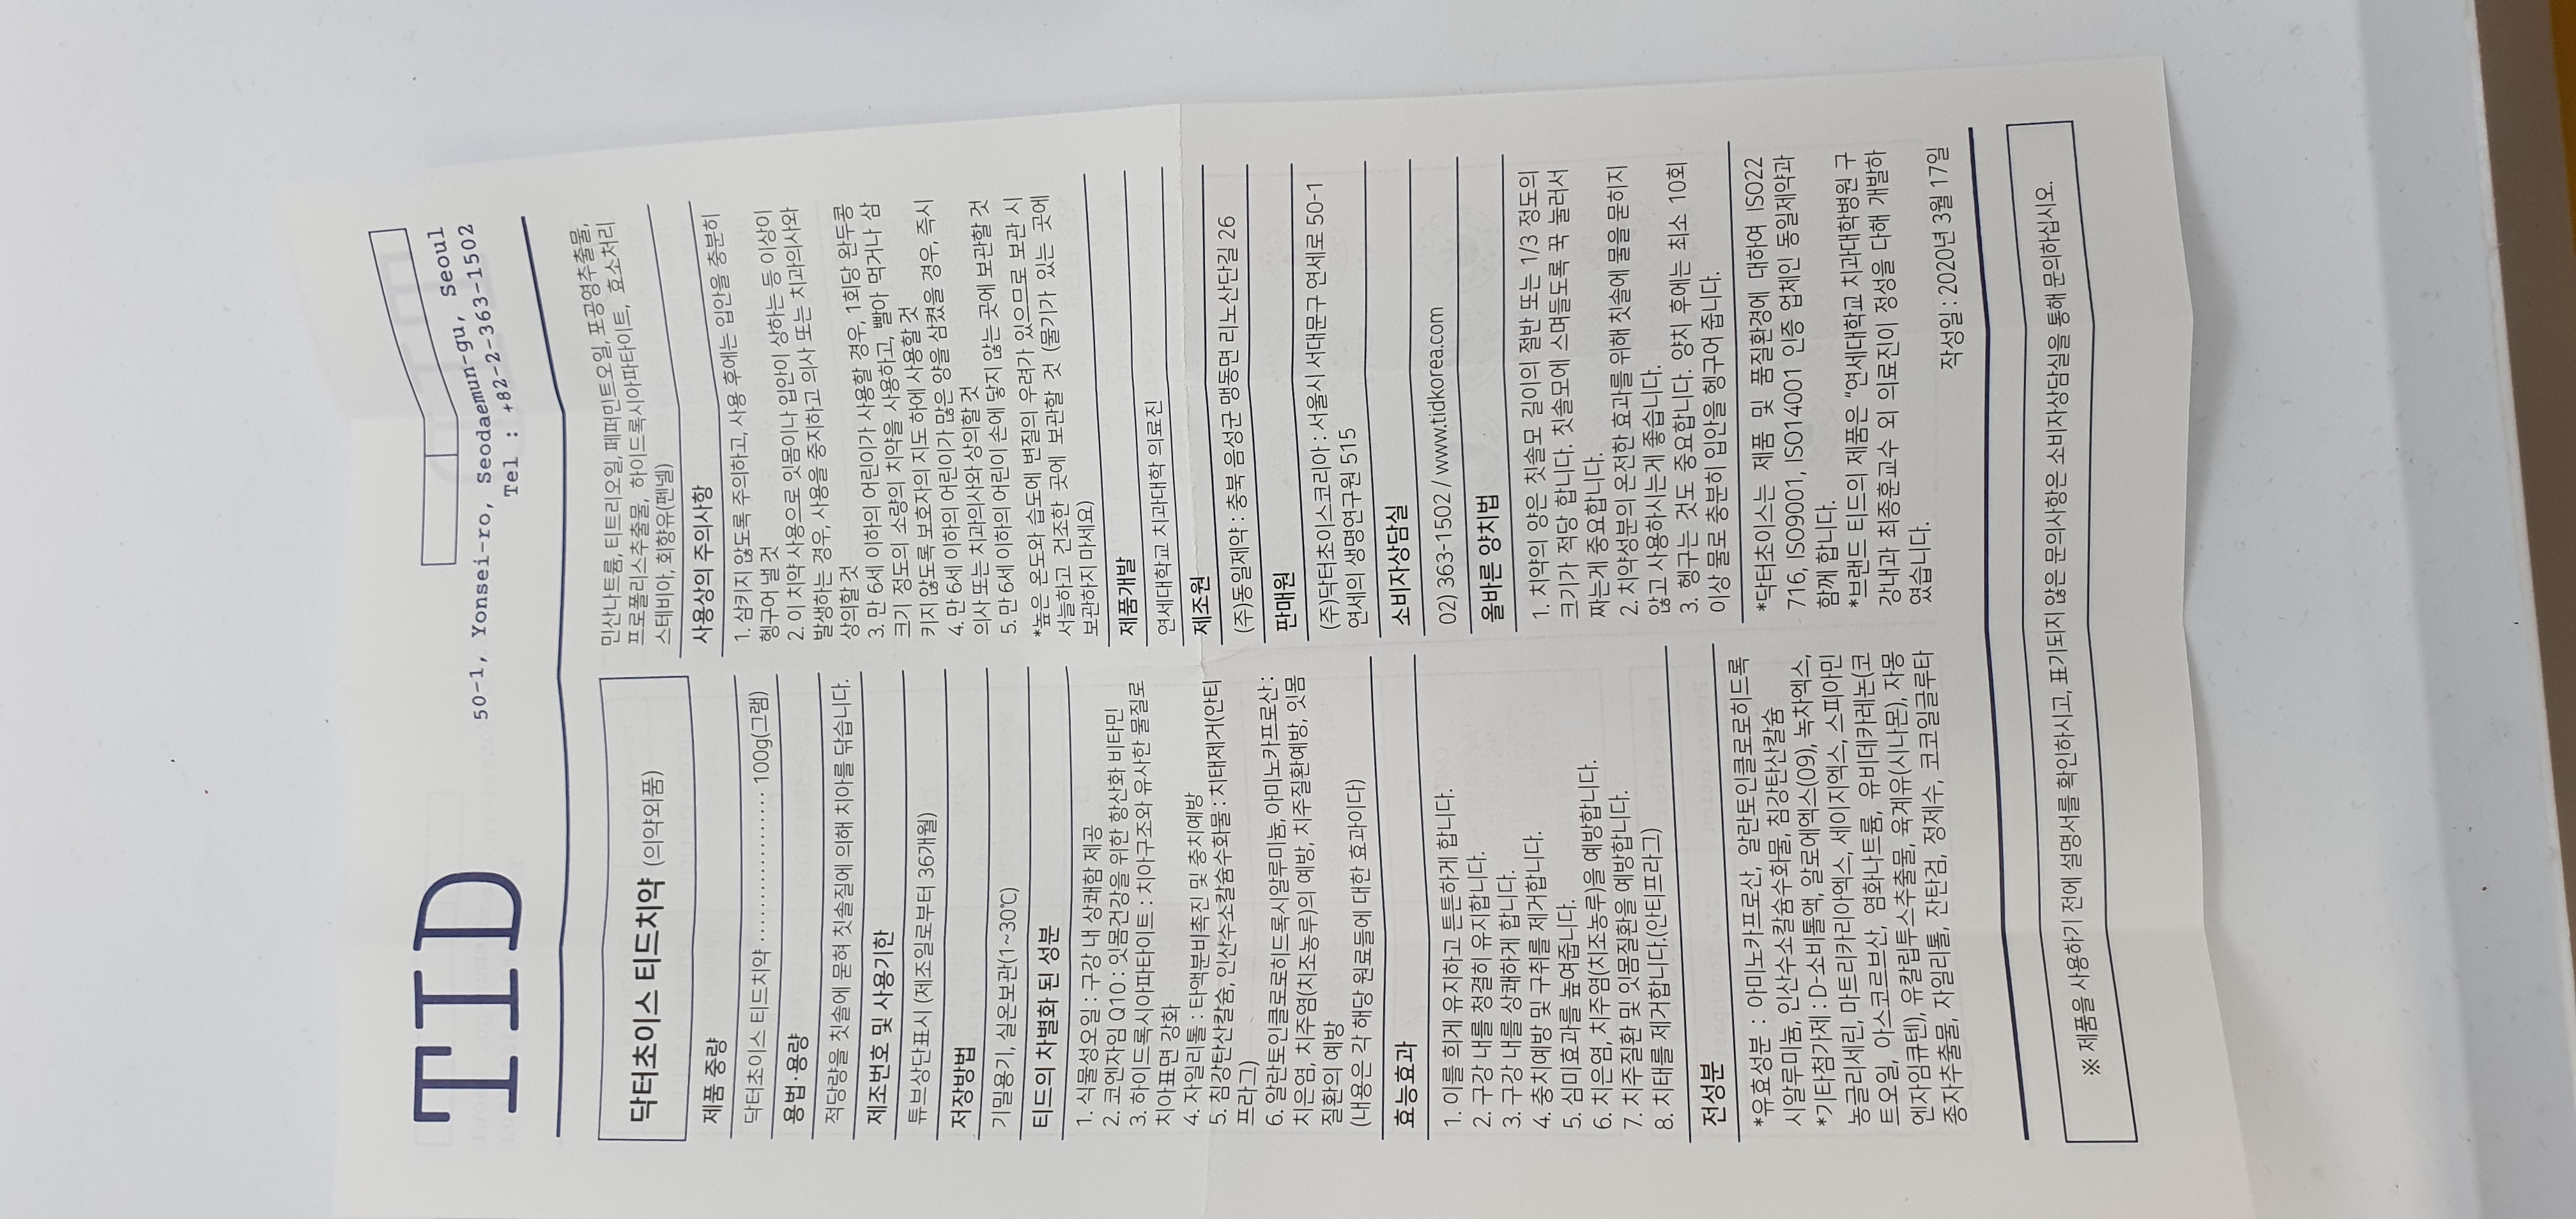 TID
50-1, Yonsei-ro, Seodaemun-gu, Seoul
Tel : +82-2-363-1502
닥터초이스 티드치약 (의약외품)
제품 중량
닥터초이스 티드치약 ........................ 100g(그램)
용법·용량
적당량을 칫솔에 묻혀 칫솔질에 의해 치아를 닦습니다.
제조번호 및 사용기한
튜브상단표시 (제조일로부터 36개월)
저장방법
기밀용기, 실온보관(1~30℃)
티드의 차별화 된 성분
1. 식물성오일 : 구강 내 상쾌함 제공
2. 코엔자임 Q10 : 잇몸건강을 위한 항산화 비타민
3. 하이드록시아파타이트 : 치아구조와 유사한 물질로
치아표면 강화
4. 자일리톨 : 타액분비촉진 및 충치예방
5. 침강탄산칼슘, 인산수소칼슘수화물 : 치태제거(안티
프라그)
6. 알란토인클로로히드록시알루미늄, 아미노카프로산 :
치은염, 치주염(치조농루)의 예방, 치주질환예방, 잇몸
질환의 예방
(내용은 각 해당 원료들에 대한 효과이다)
효능효과
1. 이를 희게 유지하고 튼튼하게 합니다.
2. 구강 내를 청결히 유지합니다.
3. 구강 내를 상쾌하게 합니다.
4. 충치예방 및 구취를 제거합니다.
5. 심미효과를 높여줍니다.
6. 치은염, 치주염(치조농루)을 예방합니다.
7. 치주질환 및 잇몸질환을 예방합니다.
8. 치태를 제거합니다.(안티프라그)
전성분
*유효성분 : 아미노카프로산, 알란토인클로로히드록
시알루미늄, 인산수소칼슘수화물, 침강탄산칼슘
*기타첨가제 : D-소비톨액, 알로에엑스(09), 녹차엑스,
농글리세린, 마트리카리아엑스, 세이지엑스, 스피아민
트오일, 아스코르브산, 염화나트륨, 유비데카레논(코
엔자임큐텐), 유칼립투스추출물, 육계유(시나몬), 자몽
종자추출물, 자일리톨, 잔탄검, 정제수, 코코일글루타
민산나트륨, 티트리오일, 페퍼민트오일, 포공영추출물,
프로폴리스추출물, 하이드록시아파타이트, 효소처리
스테비아, 회향유(펜넬)
사용상의 주의사항
1. 삼키지 않도록 주의하고, 사용 후에는 입안을 충분히
헹구어 낼 것
2. 이 치약 사용으로 잇몸이나 입안이 상하는 등 이상이
발생하는 경우, 사용을 중지하고 의사 또는 치과의사와
상의할 것
3. 만 6세 이하의 어린이가 사용할 경우, 1회당 완두콩
크기 정도의 소량의 치약을 사용하고, 빨아 먹거나 삼
키지 않도록 보호자의 지도 하에 사용할 것
4. 만 6세 이하의 어린이가 많은 양을 삼켰을 경우, 즉시
의사 또는 치과의사와 상의할 것
5. 만 6세 이하의 어린이 손에 닿지 않는 곳에 보관할 것
*높은 온도와 습도에 변질의 우려가 있으므로 보관 시
서늘하고 건조한 곳에 보관할 것 (물기가 있는 곳에
보관하지 마세요)
제품개발
연세대학교 치과대학 의료진
제조원
(주)동일제약 : 충북 음성군 맹동면 리노산단길 26
판매원
(주)닥터초이스코리아 : 서울시 서대문구 연세로 50-1
연세의 생명연구원 515
소비자상담실
02) 363-1502 / www.tidkorea.com
올바른 양치법
1. 치약의 양은 칫솔모 길이의 절반 또는 1/3 정도의
크기가 적당 합니다. 칫솔모에 스며들도록 꾹 눌러서
짜는게 중요합니다.
2. 치약성분의 온전한 효과를 위해 칫솔에 물을 묻히지
않고 사용하시는게 좋습니다.
3. 헹구는 것도 중요합니다. 양치 후에는 최소 10회
이상 물로 충분히 입안을 헹구어 줍니다.
*닥터초이스는 제품 및 품질환경에 대하여 ISO22
716, ISO9001, ISO14001 인증 업체인 동일제약과
함께 합니다.
*브랜드 티드의 제품은 "연세대학교 치과대학병원 구
강내과 최종훈교수 외 의료진이 정성을 다해 개발하
였습니다.
작성일 : 2020년 3월 17일
※ 제품을 사용하기 전에 설명서를 확인하시고, 표기되지 않은 문의사항은 소비자상담실을 통해 문의하십시오.